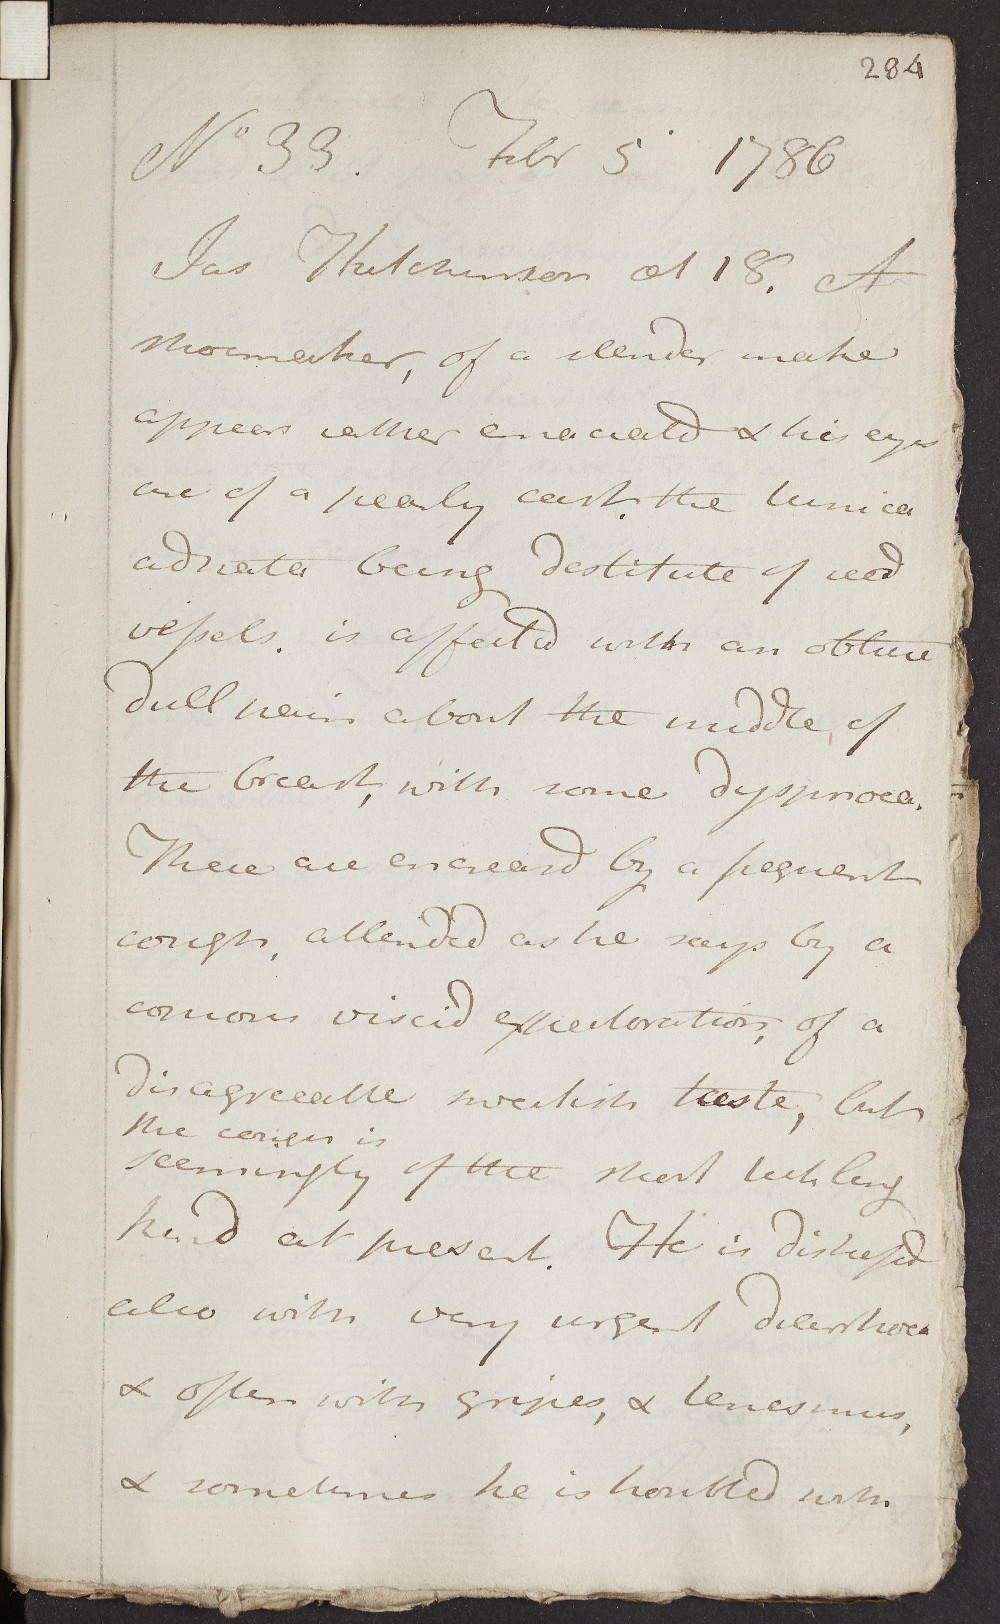 284
No 33. Febr 5 1786
Jas Hutchinson æt 18. A
shoemaker, of a slender make
appears rather emaciated & his eyes
are of a pearly cast. the tunica
adnata being destitute of red
vessels. is affected with an obtuse
dull pain about the middle of
the breast, with some dyspnoea.
These are encreasd by a frequent
cough, attended as he says by a
copious viscid expectoration, of a
disagreeable sweetish taste, but
the cough is
seemingly of the short tickling
kind at present. He is distressd
also with very urgent diarrhoea
& often with gripes, & tenesmus,
& sometimes he is troubled with